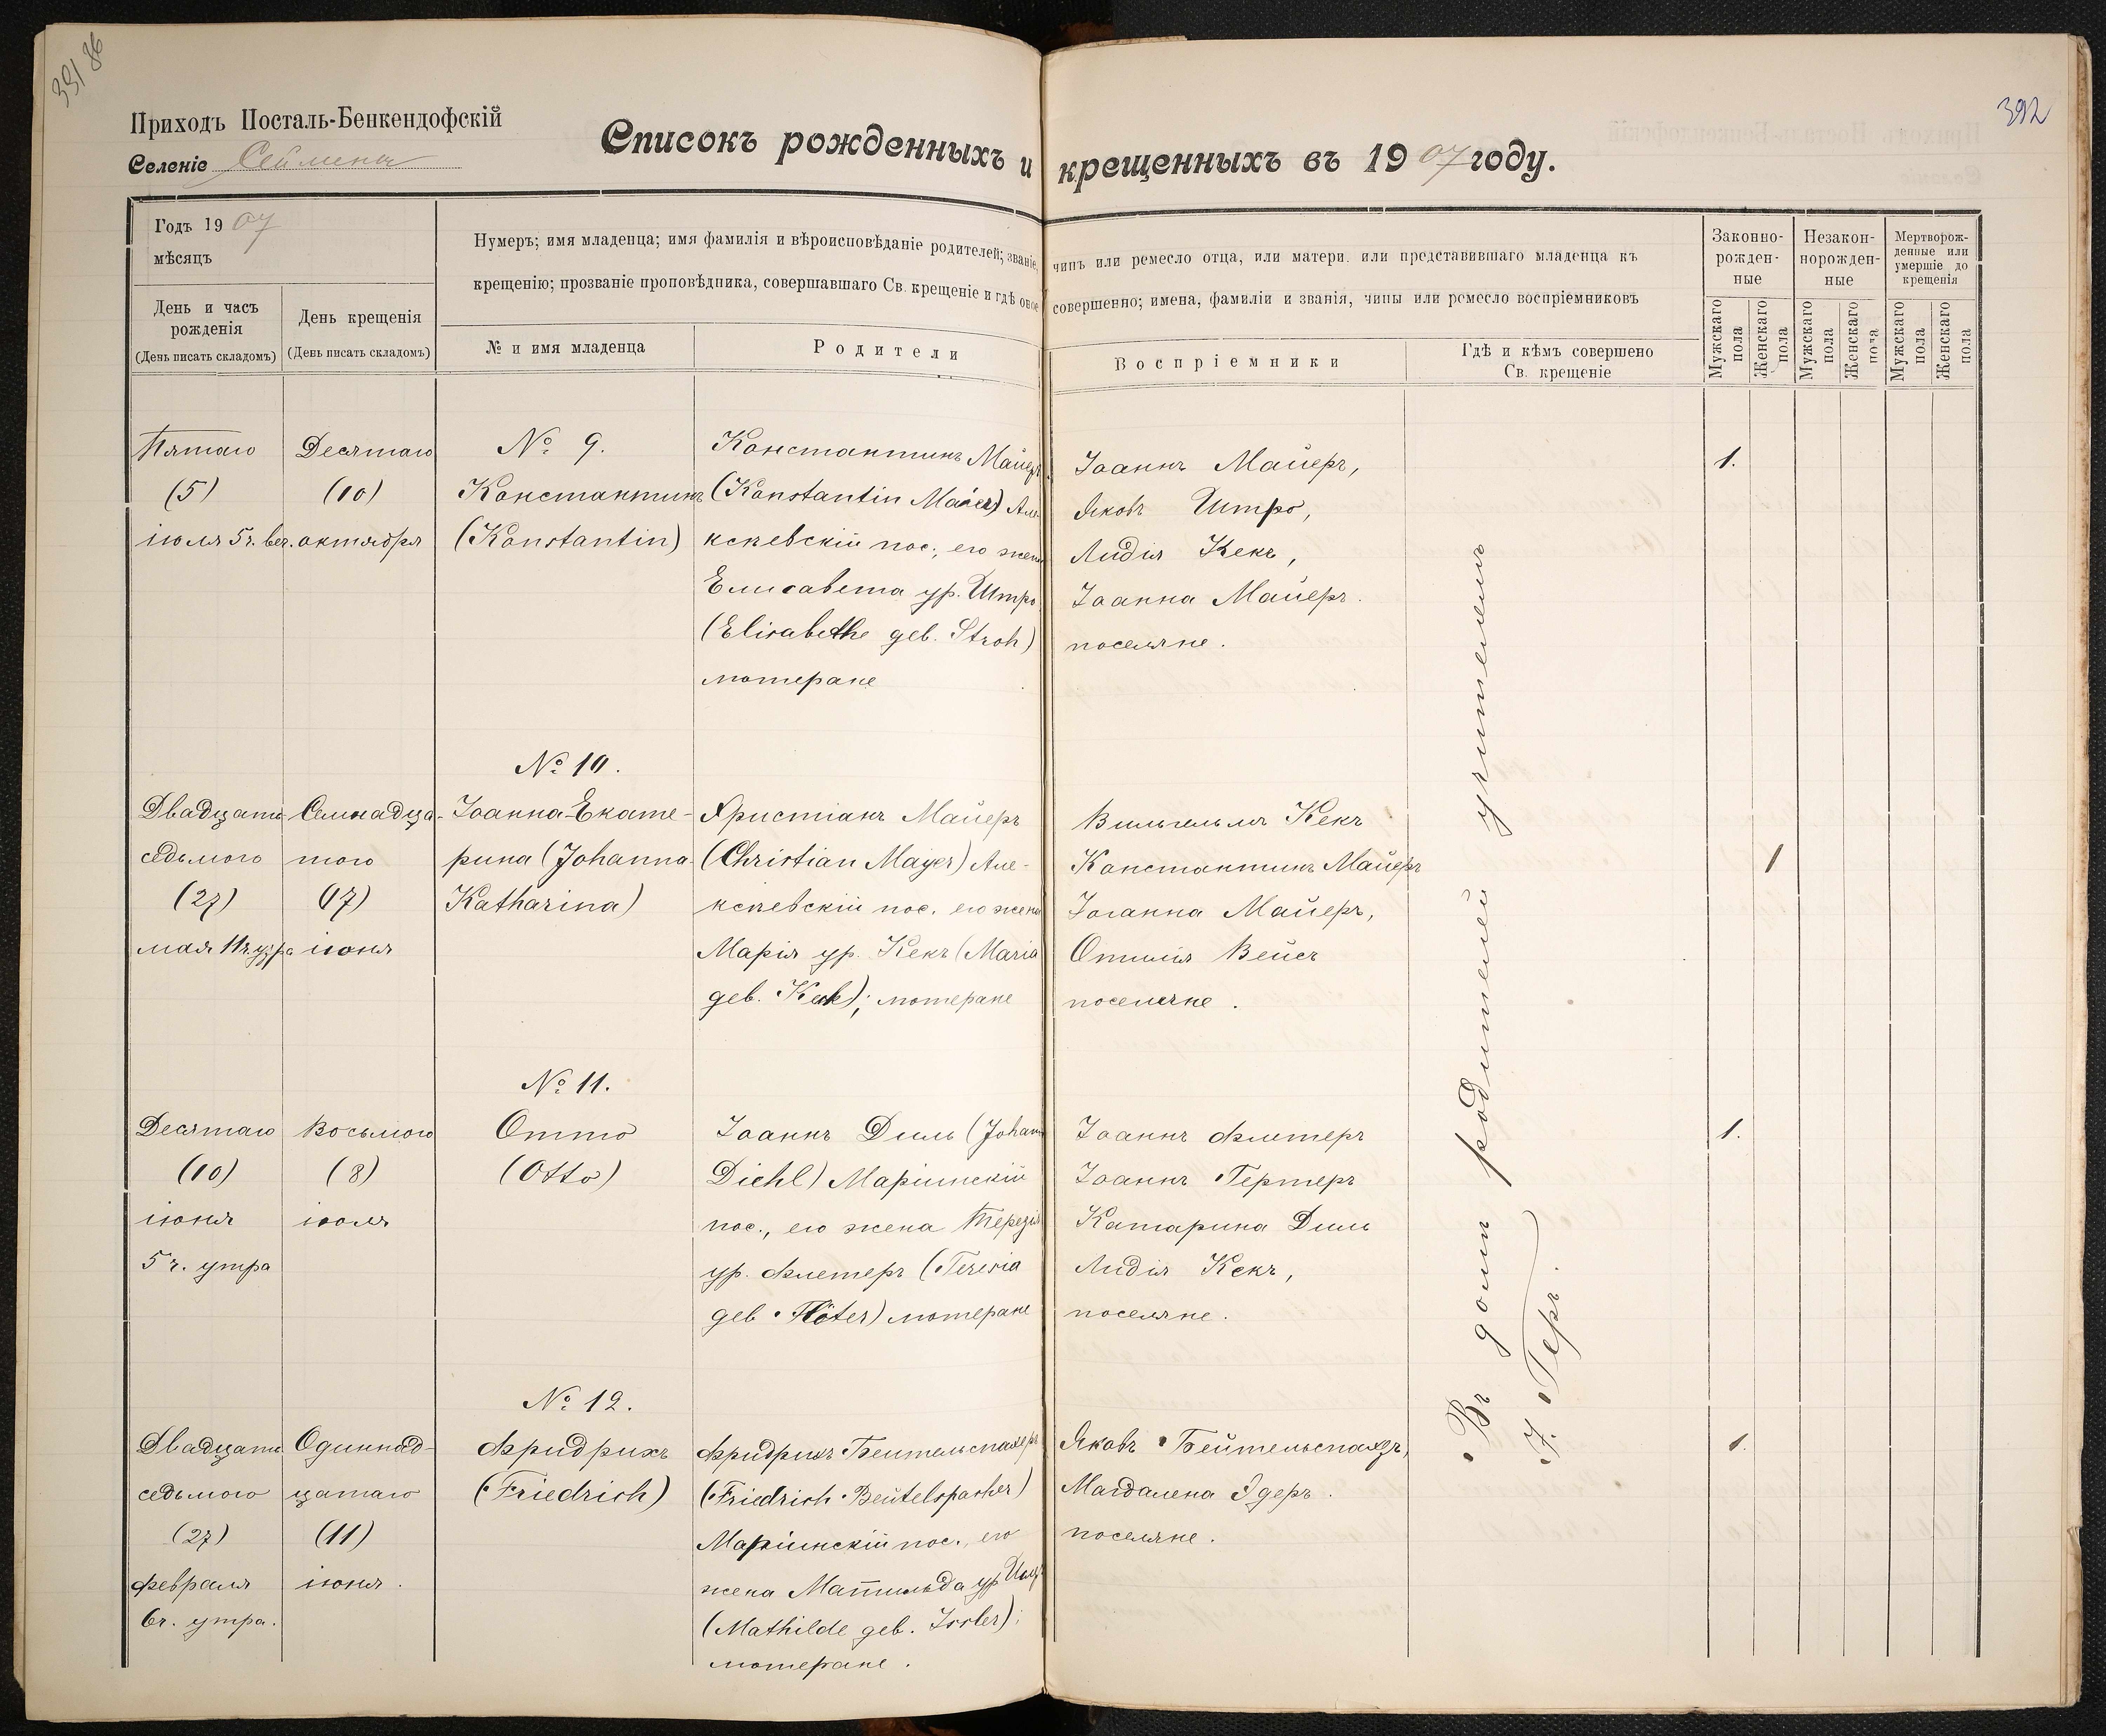 391 86
392
Приходъ Посталь-Бенкендофскій
Селеніе Сеймены
Списокъ рожденныхъ и крещенныхъ въ 1907 году.
Годъ 1907
мѣсяцъ
День и часъ рожденія
(День писать складомъ)
День крещенія
(День писать складомъ)
Нумеръ; имя младенца; имя фамилія и вѣроисповѣданіе родителей; званіе, чинъ или ремесло отца, или матери. или представившаго младенца къ
крещенію; прозваніе проповѣдника, совершавшаго Св. крещеніе и гдѣ оное совершенно; имена, фамиліи и званія, чины или ремесло воспріемниковъ
№ и имя младенца
Родители
Воспріемники
Гдѣ и кѣмъ совершено
Св. крещеніе
Законно-
рожден-
ные
Незакон-
норожден-
ные
Мертворож-
денные или
умершіе до
крещенія
Мужскаго пола
Женскаго пола
Мужскаго пола
Женскаго пола
Мужскаго пола
Женскаго пола
Пятаго
(5)
іюля 5 ч. веч.
Десятаго
(10)
октября
№ 9.
Константинъ
(Konstantin)
Константинъ Майеръ
(Konstantin Maier) Але-
ксѣевскій пос., его жена
Елисавета ур. Штро
(Elisabethe geb. Stroh)
лютеране
Іоаннъ Майеръ,
Яковъ Штро,
Лидія Кекъ,
Іоанна Майеръ.
поселяне.
1.
Двадцать
седьмого
(27)
мая 11 ч. утра
Семнадца-
таго
(17)
іюня
№ 10.
Іоанна-Екате-
рина (Johanna-
Katharina)
Христіанъ Майеръ
(Christian Mayer) Але-
ксѣевскій пос. его жена
Марія ур. Кекъ (Maria
geb. Keck); лютеране
Вильгельмъ Кекъ
Константинъ Майеръ
Іоганна Майеръ,
Отилія Вейсъ
поселяне.
1
Десятаго
(10)
іюня
5 ч. утра
Восьмого
(8)
іюля
№ 11.
Отто
(Otto)
Іоаннъ Диль (Johann
Diehl) Маріинскій
пос., его жена Терезія
ур. Флетеръ (Teresia
geb. Flöter) лютеране
Іоаннъ Флетеръ
Іоаннъ Гертеръ
Катарина Диль
Лидія Кекъ,
поселяне.
1.
Двадцать
седьмого
(27)
февраля
6 ч. утра.
Одиннад-
цатаго
(11)
іюня.
№ 12.
Фридрихъ
(Friedrich)
Фридрихъ Бейтельспахеръ
(Friedrich Beutelspacher)
Маріинскій пос., его
жена Матильда ур
(Mathilde geb. Issler);
лютеране.
Яковъ
Магдалена Эдеръ.
поселяне.
1.
Въ домѣ родителей учителемъ
І. Геръ.